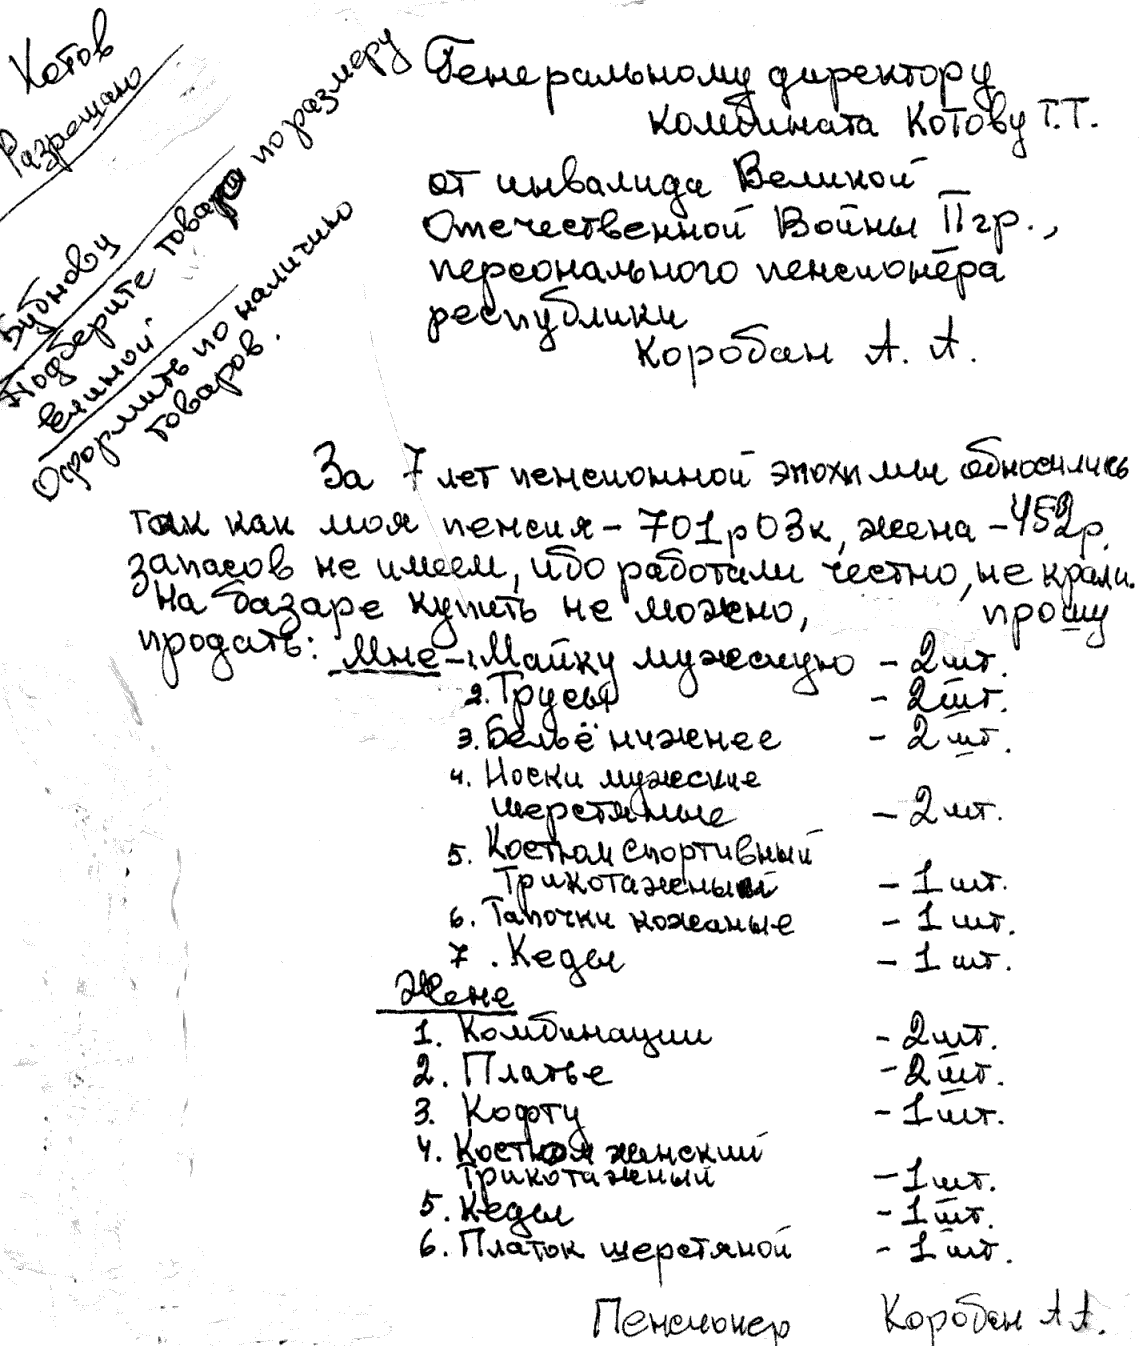 Котов
Разрешаю
Бубнову
Подберите товара по размеру
Оформить по наличию
товаров.
Генеральному директору
комбината Котову Г.Т.
от инвалида Великой
Отечественной Войны II гр.,
персонального пенсионера
республики
Коробан А. А.
За 7 лет пенсионной эпохи мы обносились
так как моя пенсия – 701р 03к, жена – 452р.
запасов не имеем, ибо работали честно, не крали.
На базаре купить не можно, прошу
продать: Мне – 1. Майку мужскую – 2 шт.
2. Трусы – 2 шт.
3. Бельё нижнее – 2 шт.
4. Носки мужские
шерстяные – 2 шт.
5. Костюм спортивный
Трикотажный – 1 шт.
6. Тапочки кожаные – 1 шт.
7. Кеды – 1 шт.
Жене
1. Комбинации – 2 шт.
2. Платье – 2 шт.
3. Кофту – 1 шт.
4. Костюм женский
Трикотажный – 1 шт.
5. Кеды – 1 шт.
6. Платок шерстяной – 1 шт.
Пенсионер Коробан А А.